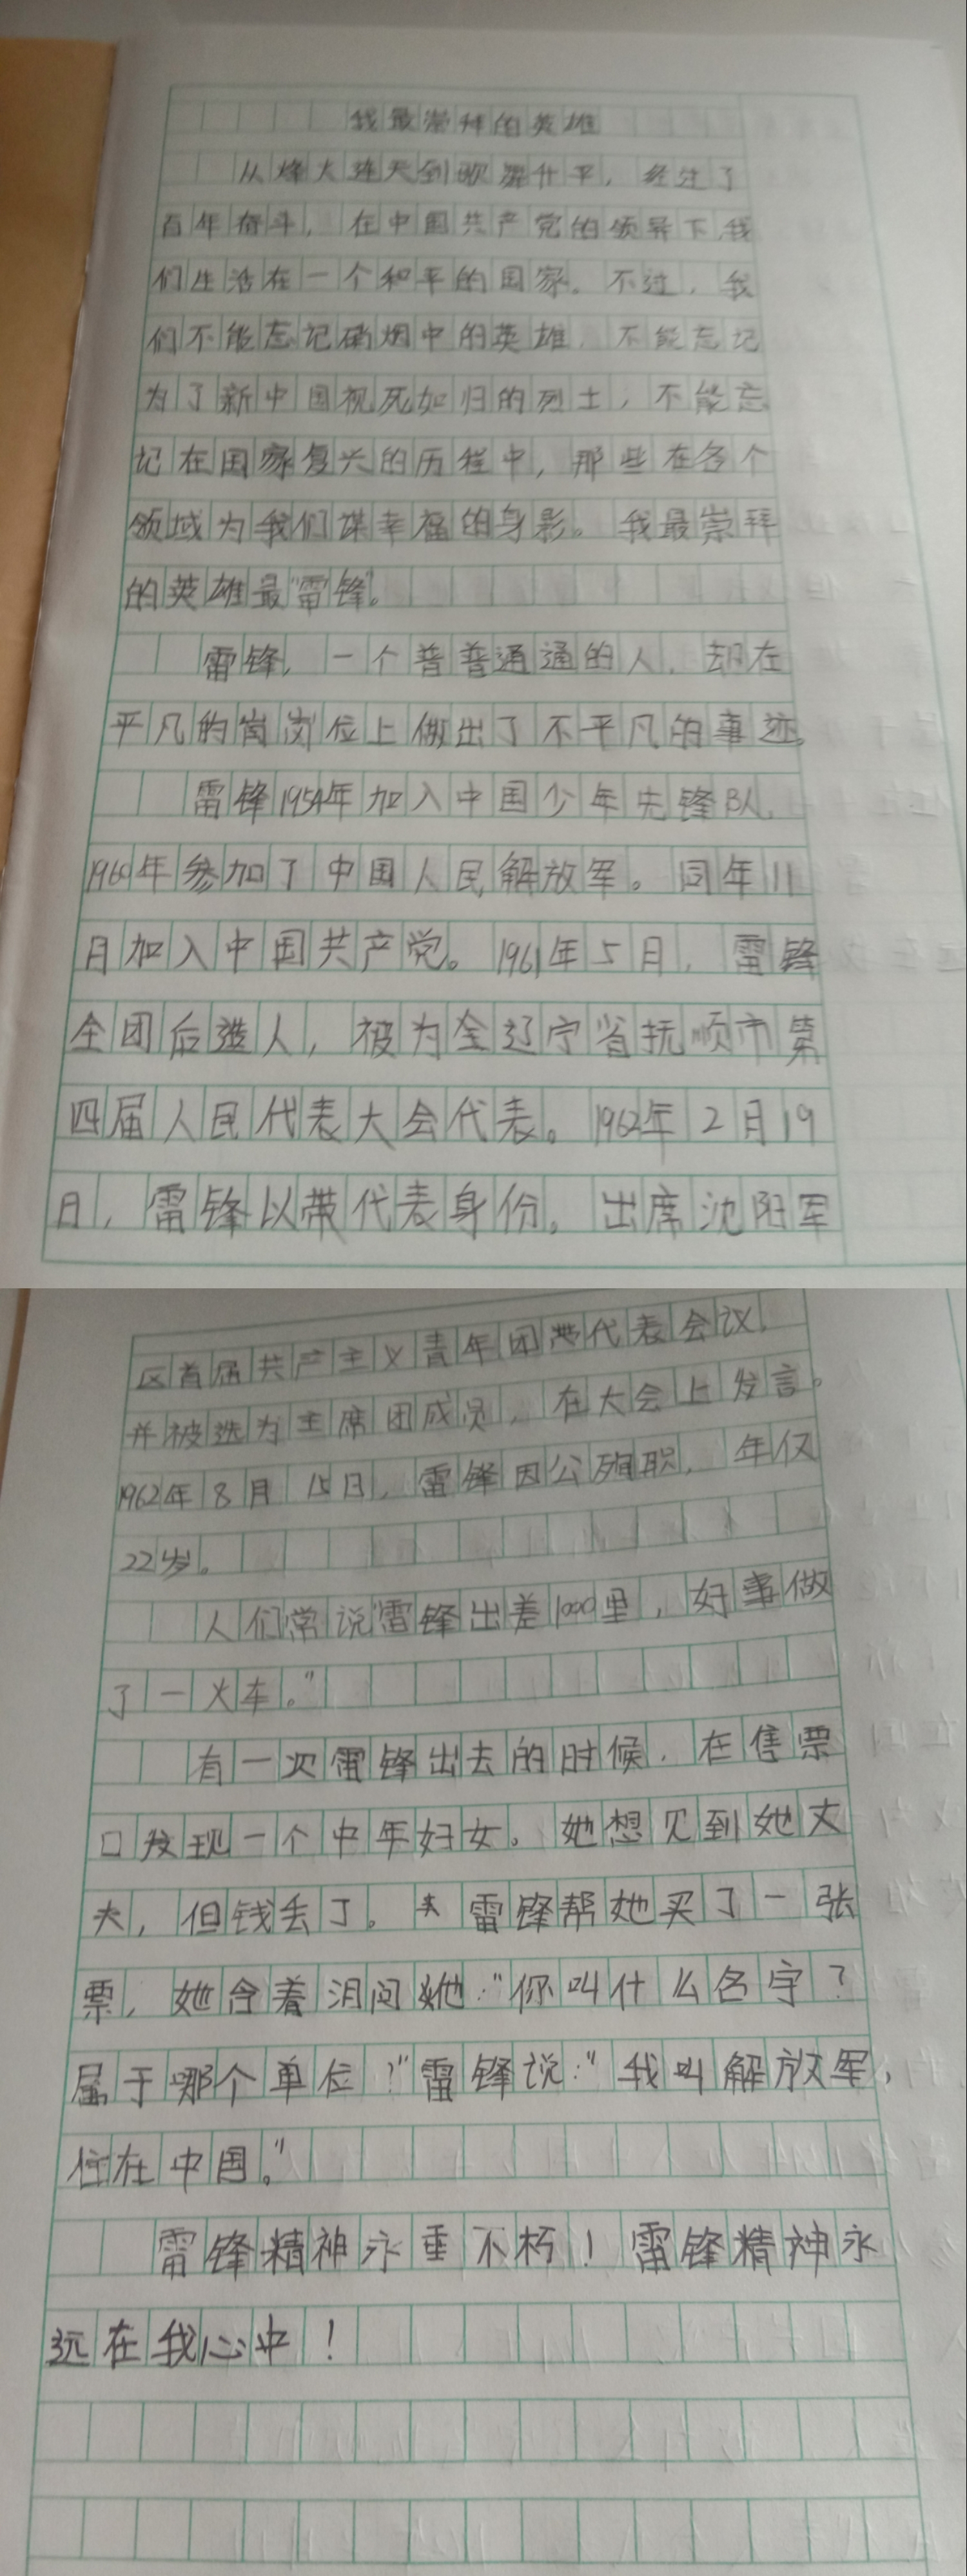 我最崇拜的英雄
从烽火连天到歌舞升平，经过了
百年奋斗，在中国共产党的领导下，我
们生活在一个和平的国家。不过，我
们不能忘记硝烟中的英雄，不能忘记
为了新中国视死如归的烈士，不能忘
记在国家复兴的历程中，那些在各个
领域为我们谋幸福的身影。我最崇拜
的英雄最“雷锋”。
雷锋，一个普普通通的人，却在
平凡的岗岗位上做出了不平凡的事迹。
雷锋1954年加入中国少年先锋队，
1960年参加了中国人民解放军。同年11
月加入中国共产党。1961年5月，雷锋
全团后选人，被为全辽宁省抚顺市第
四届人民代表大会代表。1962年2月19
日，雷锋以带代表身份，出席沈阳军
区首届共产主义青年团代表会议，
并被选为主席团成员，在大会上发言。
1962年8月15日，雷锋因公殉职，年仅
22岁。
人们常说“雷锋出差1000里，好事做
了一火车。”
有一次雷锋出去的时候，在售票
口发现一个中年妇女。她想见到她丈
夫，但钱丢了。雷锋帮她买了一张
票，她含着泪问他：“你叫什么名字？
属于哪个单位？”雷锋说：“我叫解放军，
住在中国。”
雷锋精神永垂不朽！雷锋精神永
远在我心中！